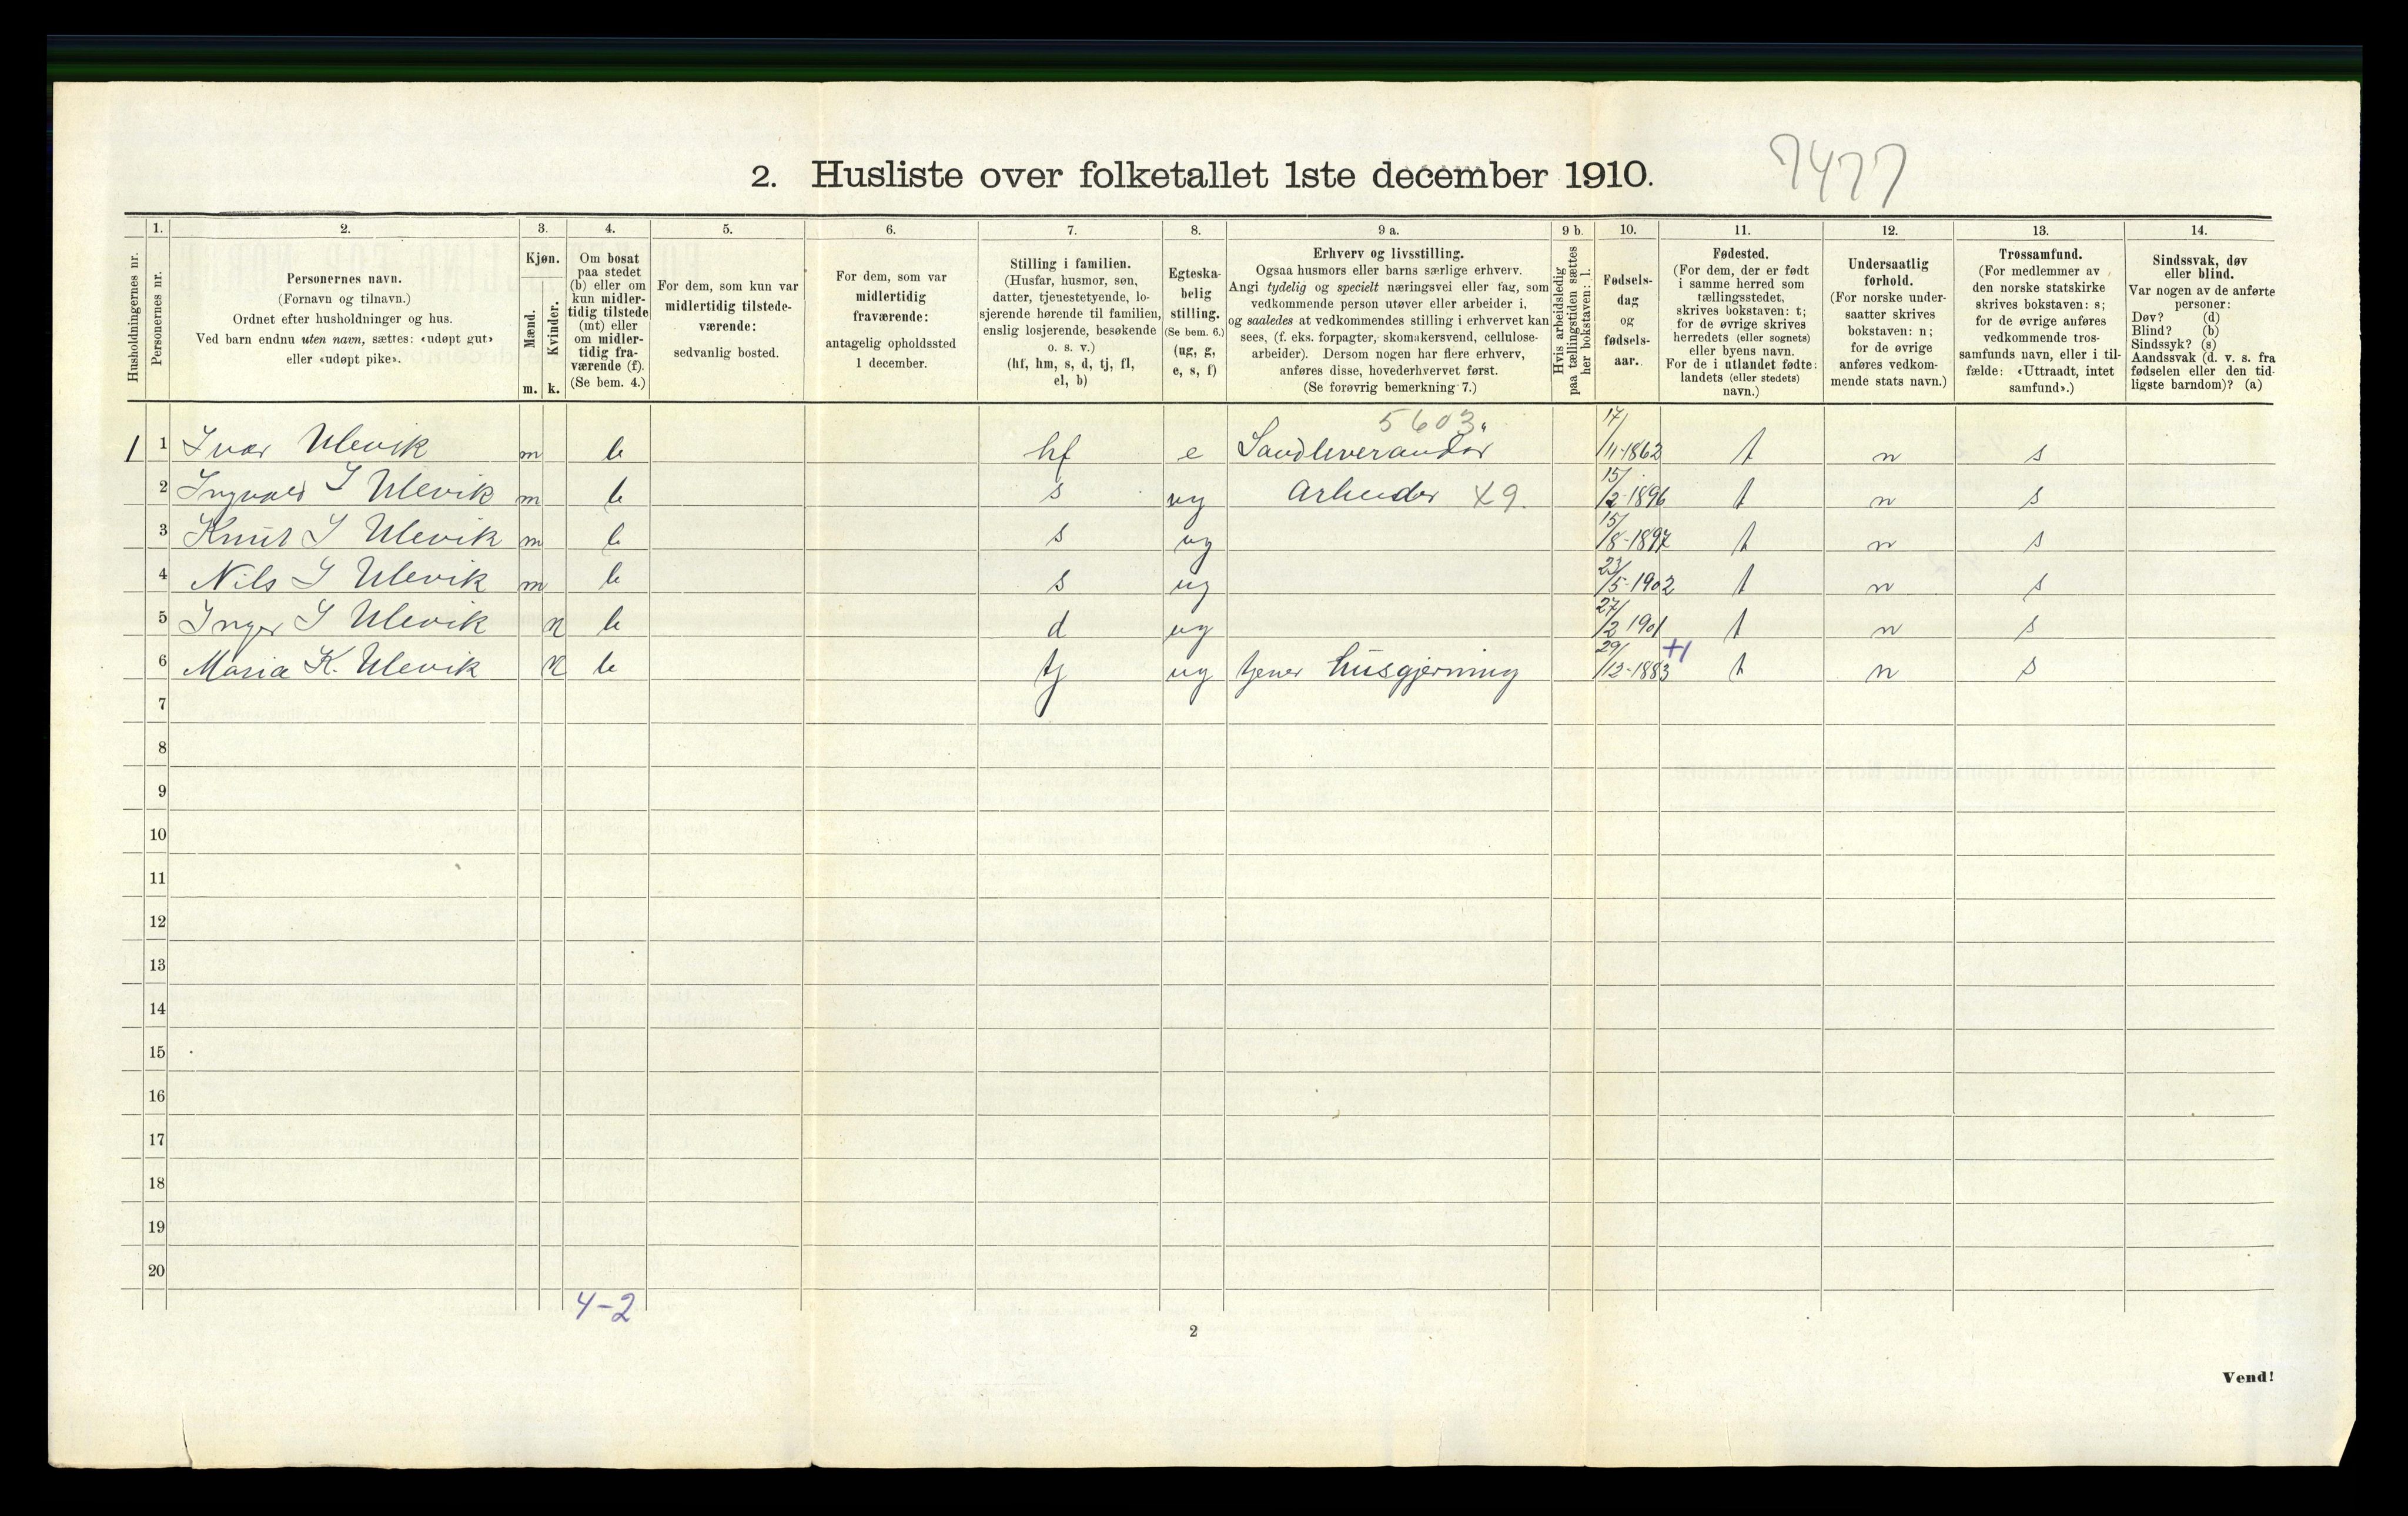 2. Husliste over folketallet 1ste december 1910.
7477
1.
2.
3.
4.
5.
6.
7.
8.
9 a.
9 b.
10.
11.
12.
13.
14.
Husholdningernes nr.
Personernes nr.
Personernes navn.
(Fornavn og tilnavn.)
Ordnet efter husholdninger og hus.
Ved barn endnu uten navn, sættes: «udøpt gut»
eller «udøpt pike».
Kjøn.
Mænd.
Kvinder.
m. k.
Om bosat
paa stedet
(b) eller om
kun midler-
tidig tilstede
(mt) eller
om midler-
tidig fra-
værende (f).
(Se bem. 4.)
For dem, som kun var
midlertidig tilstede-
værende:
sedvanlig bosted.
For dem, som var
midlertidig
fraværende:
antagelig opholdssted
1 december.
Stilling i familien.
(Husfar, husmor, søn,
datter, tjenestetyende, lo-
sjerende hørende til familien,
enslig losjerende, besøkende
o. s. v.)
(hf, hm, s, d, tj, fl,
el, b)
Egteska-
belig
stilling.
(Se bem. 6.)
(ug, g,
e, s, f)
Erhverv og livsstilling.
Ogsaa husmors eller barns særlige erhverv.
Angi tydelig og specielt næringsvei eller fag, som
vedkommende person utøver eller arbeider i,
og saaledes at vedkommendes stilling i erhvervet kan
sees, (f. eks. forpagter, skomakersvend, cellulose-
arbeider). Dersom nogen har flere erhverv,
anføres disse, hovederhvervet først.
(Se forøvrig bemerkning 7.)
Hvis arbeidsledig
paa tællingstiden sættes
her bokstaven: l.
Fødsels-
dag
og
fødsels-
aar.
Fødested.
(For dem, der er født
i samme herred som
tællingsstedet,
skrives bokstaven: t;
for de øvrige skrives
herredets (eller sognets)
eller byens navn.
For de i utlandet fødte:
landets (eller stedets)
navn.)
Undersaatlig
forhold.
(For norske under-
saatter skrives
bokstaven: n;
for de øvrige
anføres vedkom-
mende stats navn.)
Trossamfund.
(For medlemmer av
den norske statskirke
skrives bokstaven: s;
for de øvrige anføres
vedkommende tros-
samfunds navn, eller i til-
fælde: «Uttraadt, intet
samfund».)
Sindssvak, døv
eller blind.
Var nogen av de anførte
personer:
Døv? (d)
Blind? (b)
Sindssyk? (s)
Aandssvak (d. v. s. fra
fødselen eller den tid-
ligste barndom)? (a)
5603
1 1 Ivar Ulevik m b hf e Sandleverandør 17/11-1862 t n s
2 Ingvald I Ulevik m b s ug Arbeider X9. 15/2-1896 t n s
3 Knut I Ulevik m b s ug 15/8-1897 t n s
4 Nils I Ulevik m b s ug 23/5-1902 t n s
5 Inger I Ulevik k b d ug 27/2 1901 t n s
6 Maria K. Ulevik k b tj ug tjener husgjerning 29/12-1883 +1 t n s
7
8
9
10
11
12
13
14
15
16
17
18
19
20
4-2
2
Vend!